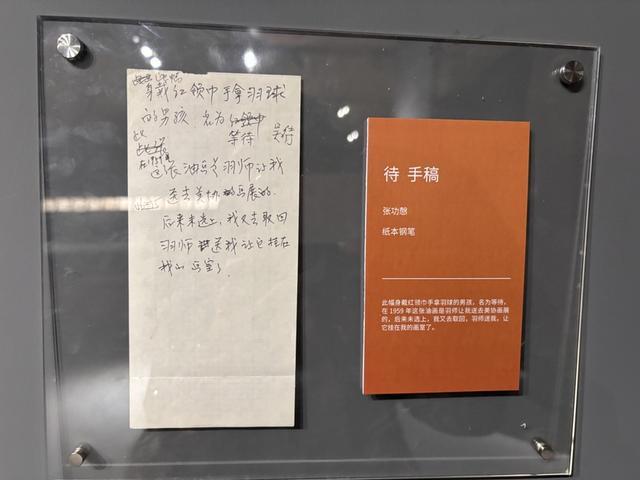 此幅
身戴红领巾手拿羽球
的男孩 名为红领巾
等待
此
在1959年
这张油画是羽师让我
送去美协画展的.
后来未选上,我又去取回
羽师送我让它挂在
我的画室了.
待 手稿
张功慤
纸本钢笔
此幅身戴红领巾手拿羽球的男孩,名为等待,
在 1959 年这张油画是羽师让我送去美协画展
的,后来未选上,我又去取回,羽师送我,让
它挂在我的画室了。